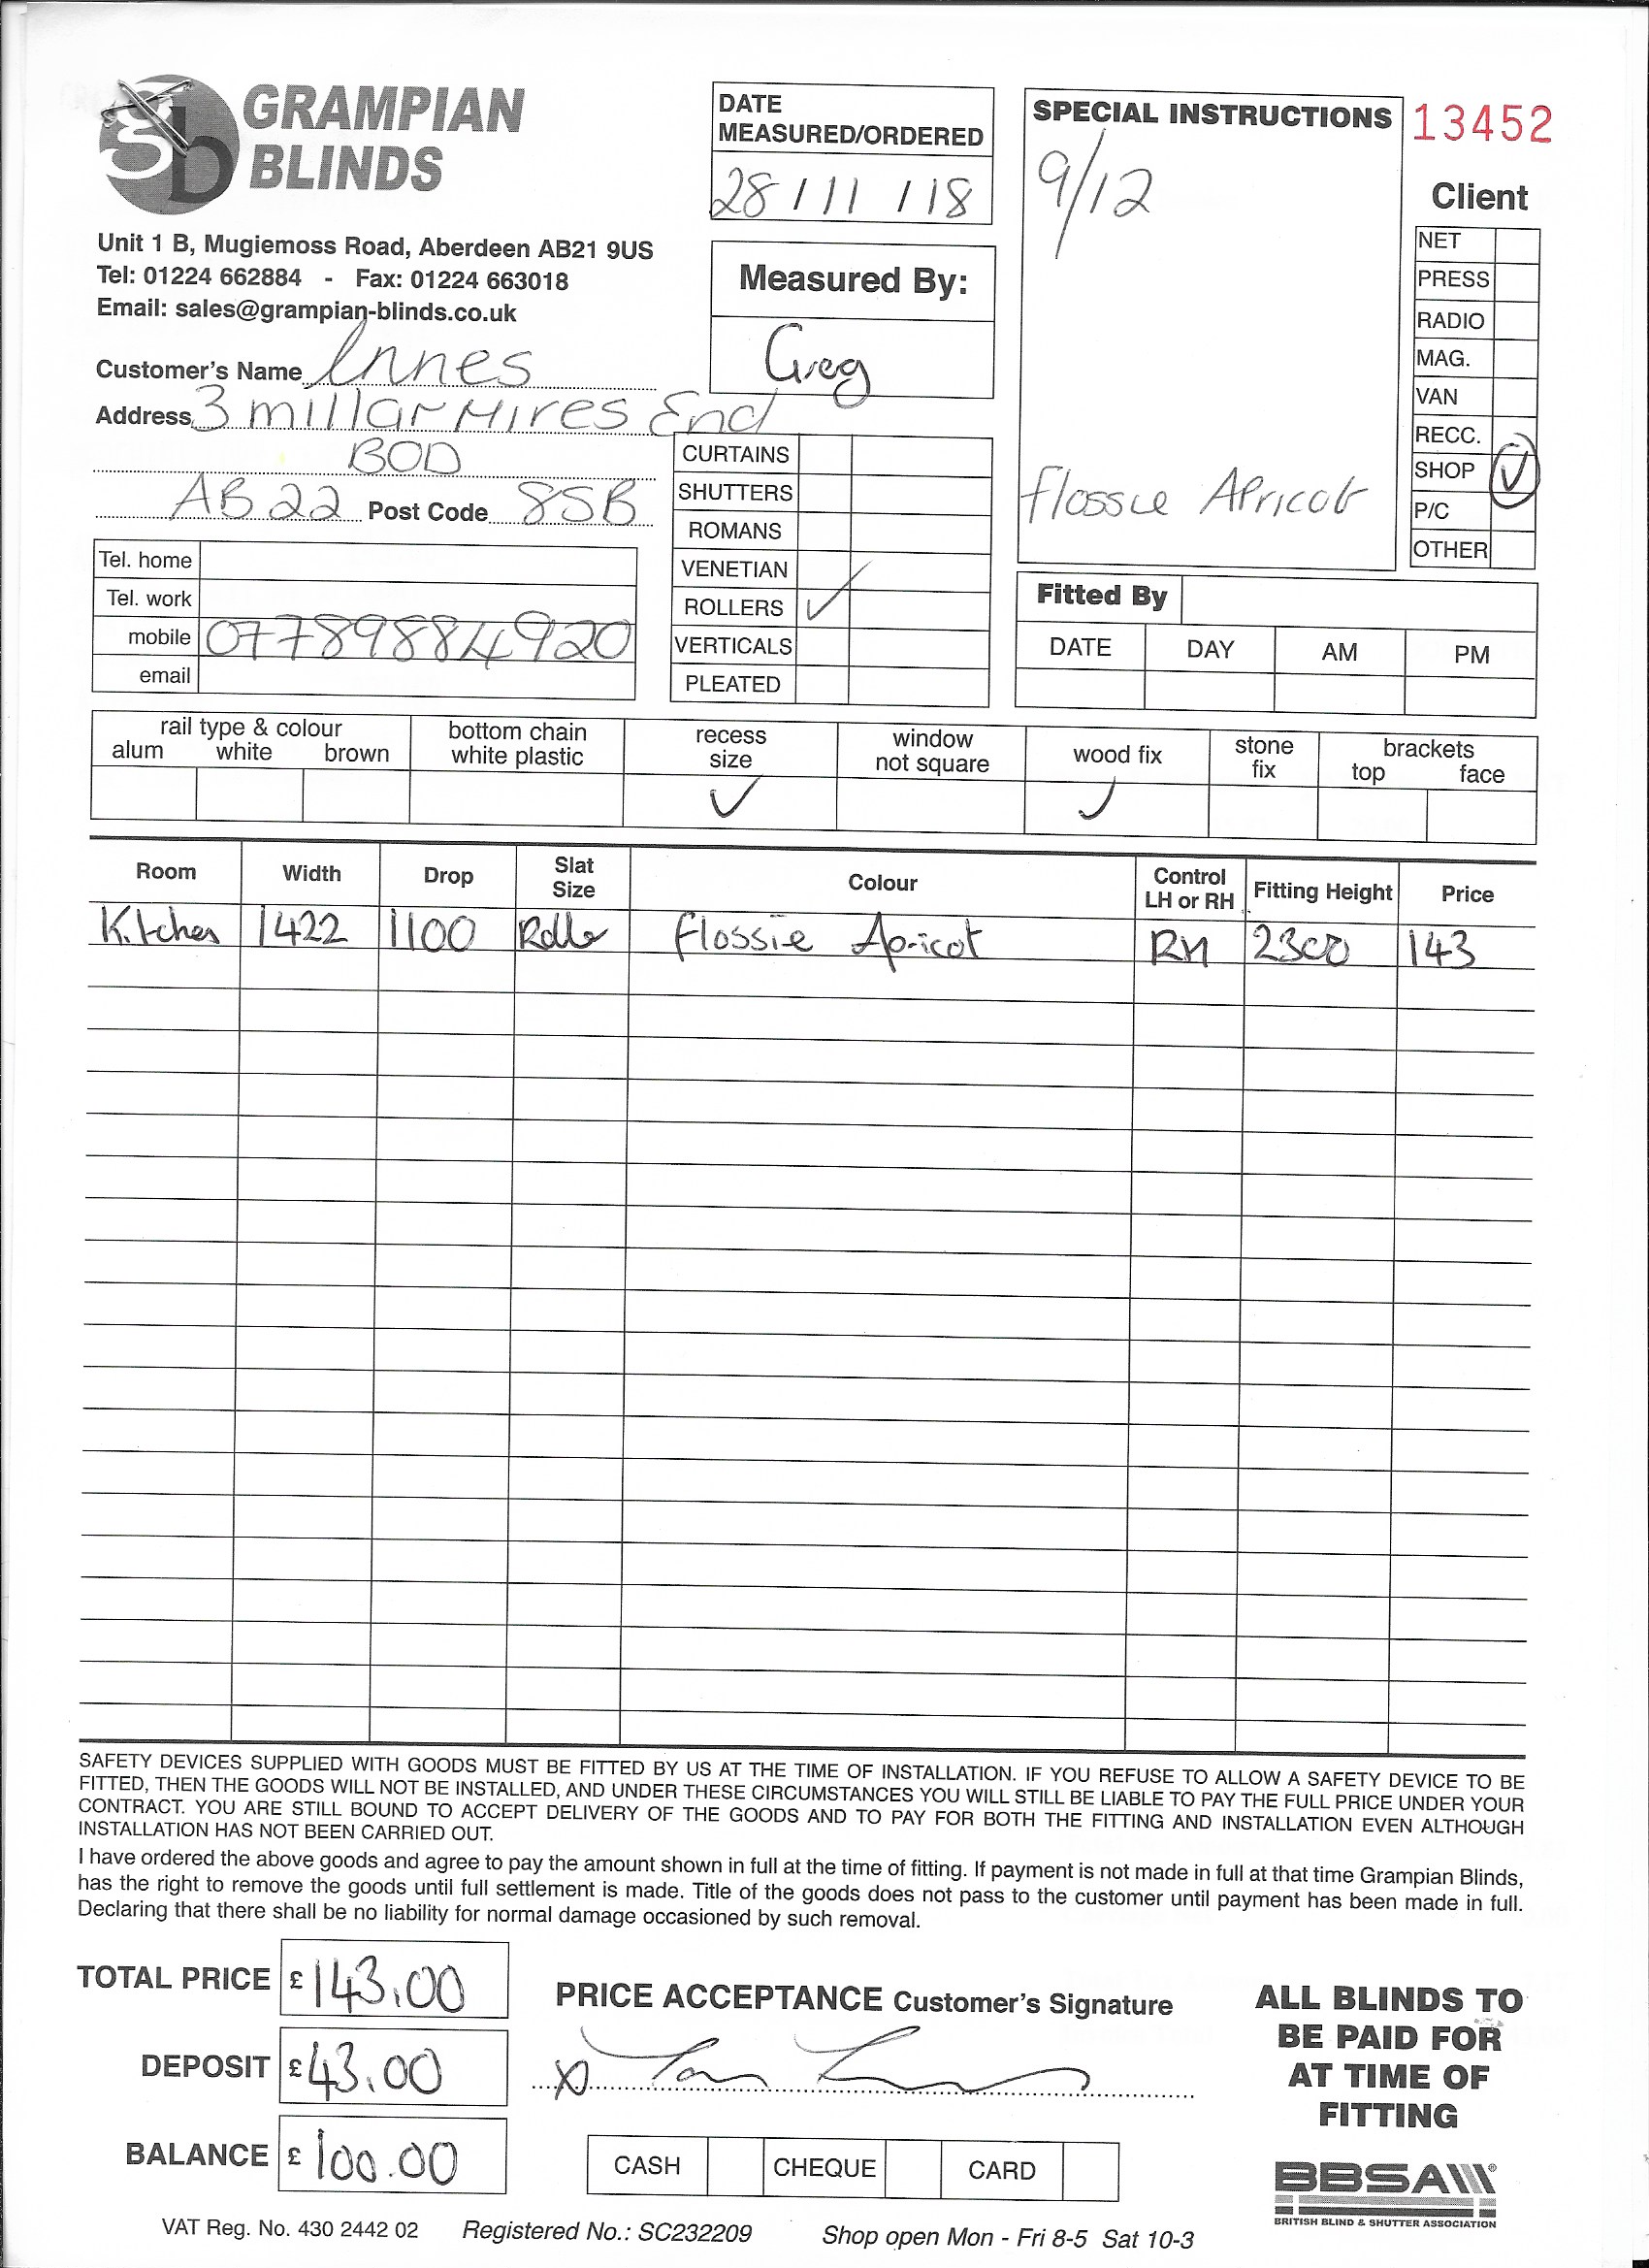 gb GRAMPIAN BLINDS
Unit 1 B, Mugiemoss Road, Aberdeen AB21 9US
Tel: 01224 662884 - Fax: 01224 663018
Email: sales@grampian-blinds.co.uk
Customer's Name Innes
Address 3 millar mires End
BOD
AB22 Post Code 8SB
Tel. home
Tel. work
mobile 07789884920
email
DATE MEASURED/ORDERED
28/11/18
Measured By:
Greg
CURTAINS
SHUTTERS
ROMANS
VENETIAN
ROLLERS ✓
VERTICALS
PLEATED
SPECIAL INSTRUCTIONS
9/12
flossie Apricot
13452
Client
NET
PRESS
RADIO
MAG.
VAN
RECC.
SHOP ✓
P/C
OTHER
Fitted By
DATE DAY AM PM
rail type & colour
alum white brown
bottom chain
white plastic
recess
size
✓
window
not square
wood fix
✓
stone
fix
brackets
top face
Room Width Drop Slat Size Colour Control LH or RH Fitting Height Price
Kitchen 1422 1100 Roller flossie Apricot RH 2300 143
SAFETY DEVICES SUPPLIED WITH GOODS MUST BE FITTED BY US AT THE TIME OF INSTALLATION. IF YOU REFUSE TO ALLOW A SAFETY DEVICE TO BE
FITTED, THEN THE GOODS WILL NOT BE INSTALLED, AND UNDER THESE CIRCUMSTANCES YOU WILL STILL BE LIABLE TO PAY THE FULL PRICE UNDER YOUR
CONTRACT. YOU ARE STILL BOUND TO ACCEPT DELIVERY OF THE GOODS AND TO PAY FOR BOTH THE FITTING AND INSTALLATION EVEN ALTHOUGH
INSTALLATION HAS NOT BEEN CARRIED OUT.
I have ordered the above goods and agree to pay the amount shown in full at the time of fitting. If payment is not made in full at that time Grampian Blinds,
has the right to remove the goods until full settlement is made. Title of the goods does not pass to the customer until payment has been made in full.
Declaring that there shall be no liability for normal damage occasioned by such removal.
TOTAL PRICE £143.00
DEPOSIT £43.00
BALANCE £100.00
PRICE ACCEPTANCE Customer's Signature
x
CASH CHEQUE CARD
ALL BLINDS TO
BE PAID FOR
AT TIME OF
FITTING
BBSA
BRITISH BLIND & SHUTTER ASSOCIATION
VAT Reg. No. 430 2442 02 Registered No.: SC232209 Shop open Mon - Fri 8-5 Sat 10-3